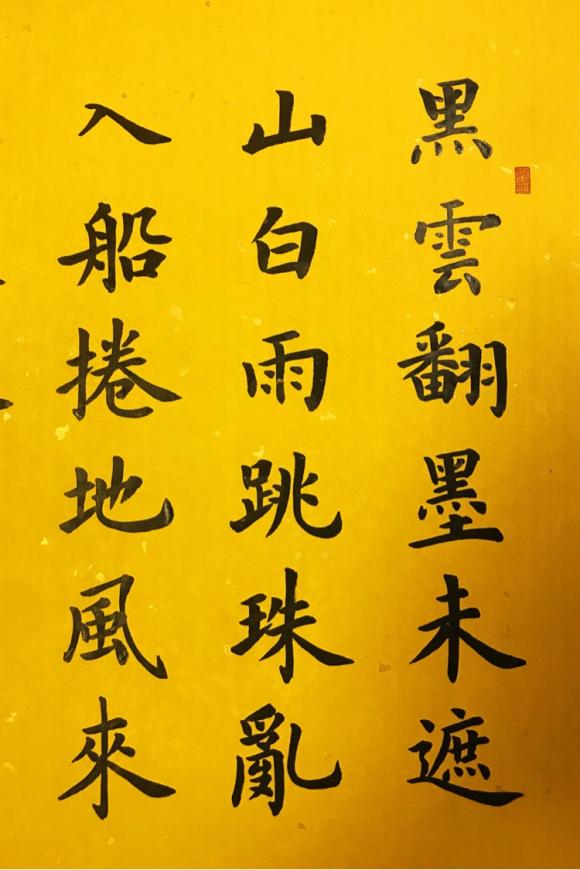 黑雲翻墨未遮
山白雨跳珠亂
入船捲地風來